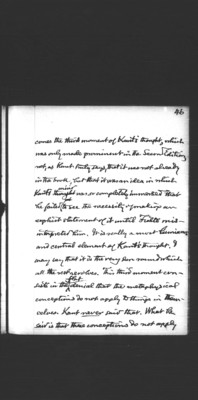 46
comes the third moment of Kant's thought, which
was only made prominent in the Second Edition,
not, as Kant truly says, that it was not already
in the book, but that it was an idea in which
Kant's mind was so completely immersed that
he failed to see the necessity of making an
explicit statement of it until Fichte mis-
interpreted him. It is really a most luminous
and central element of Kant's thought. I
may say that it is the very sun round which
all the rest revolve. This third moment con-
sists in the flat denial that the metaphysical
conceptions do not apply to things in them-
selves. Kant never said that. What he
said is that these conceptions do not apply